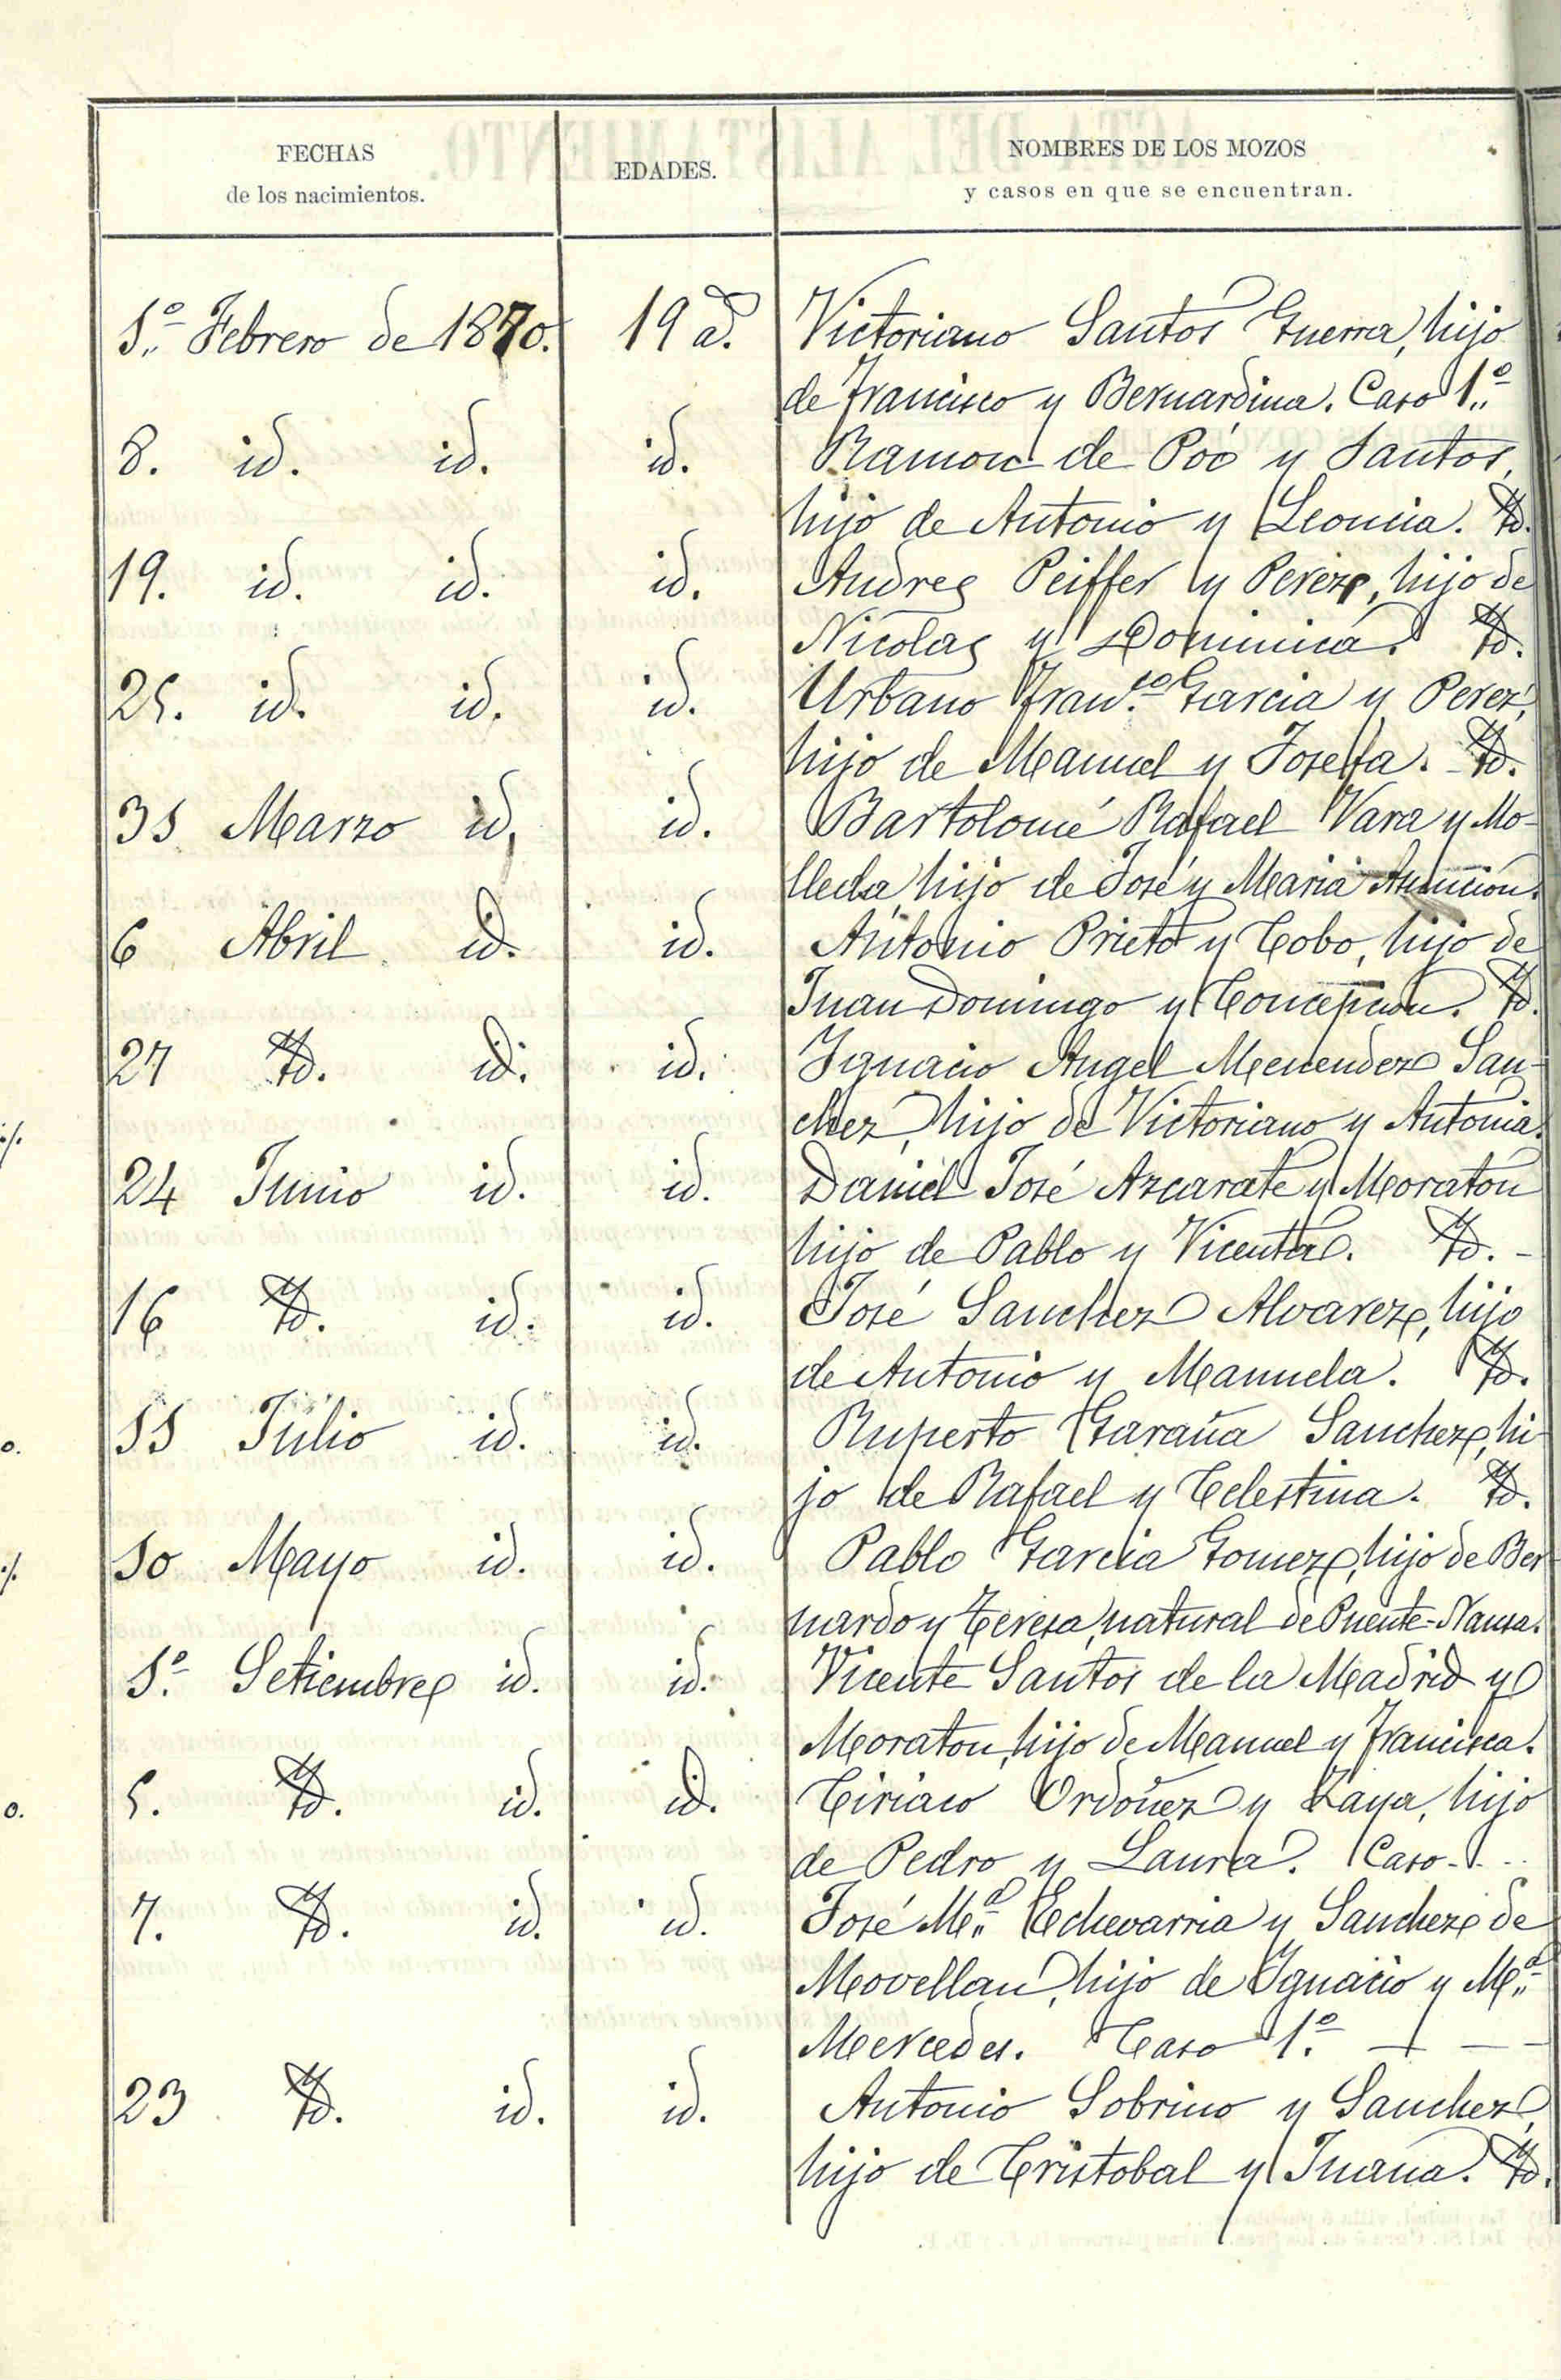 FECHAS
de los nacimientos.
EDADES.
NOMBRES DE LOS MOZOS
y casos en que se encuentran.
1.º Febrero de 1870. 19 a. Victoriano Santos Guerra, hijo
de Francisco y Bernardina. Caso 1.º
8. id. id. id. Ramon de Poó y Santos,
hijo de Antonio y Leoncia. Yd.
19. id. id. id. Andres Peiffer y Perez, hijo de
Nicolas y Dominica. Yd.
25. id. id. id. Urbano Fran.co Garcia y Perez,
hijo de Manuel y Josefa. Yd.
31 Marzo id. id. Bartolomé Rafael Vara y Mo-
lleda, hijo de José y Maria Asuncion.
6 Abril id. id. Antonio Prieto y Cobo, hijo de
Juan Domingo y Concepcion. Yd.
27 Yd. id. id. Ygnacio Angel Menendez San-
chez, hijo de Victoriano y Antonia.
24 Junio id. id. Daniel José Azcarate y Moraton
hijo de Pablo y Vicenta. Yd. -
16 Yd. id. id. José Sanchez Alvarez, hijo
de Antonio y Manuela. Yd.
11 Julio id. id. Ruperto Garaña Sanchez, hi-
jo de Rafael y Celestina. Yd.
10 Mayo id. id. Pablo Garcia Gomez, hijo de Ber-
nardo y Teresa, natural de Puente-Nansa.
1.º Setiembre id. id. Vicente Santos de la Madrid y
Moraton, hijo de Manuel y Francisca.
5. Yd. id. id. Ciriaco Ordoñez y Zaya, hijo
de Pedro y Laura. Caso -
7. Yd. id. id. José M.ª Echevarria y Sanchez de
Movellan, hijo de Ygnacio y M.ª
Mercedes. Caso 1.º - - -
23 Yd. id. id. Antonio Sobrino y Sanchez,
hijo de Cristobal y Juana. Yd.